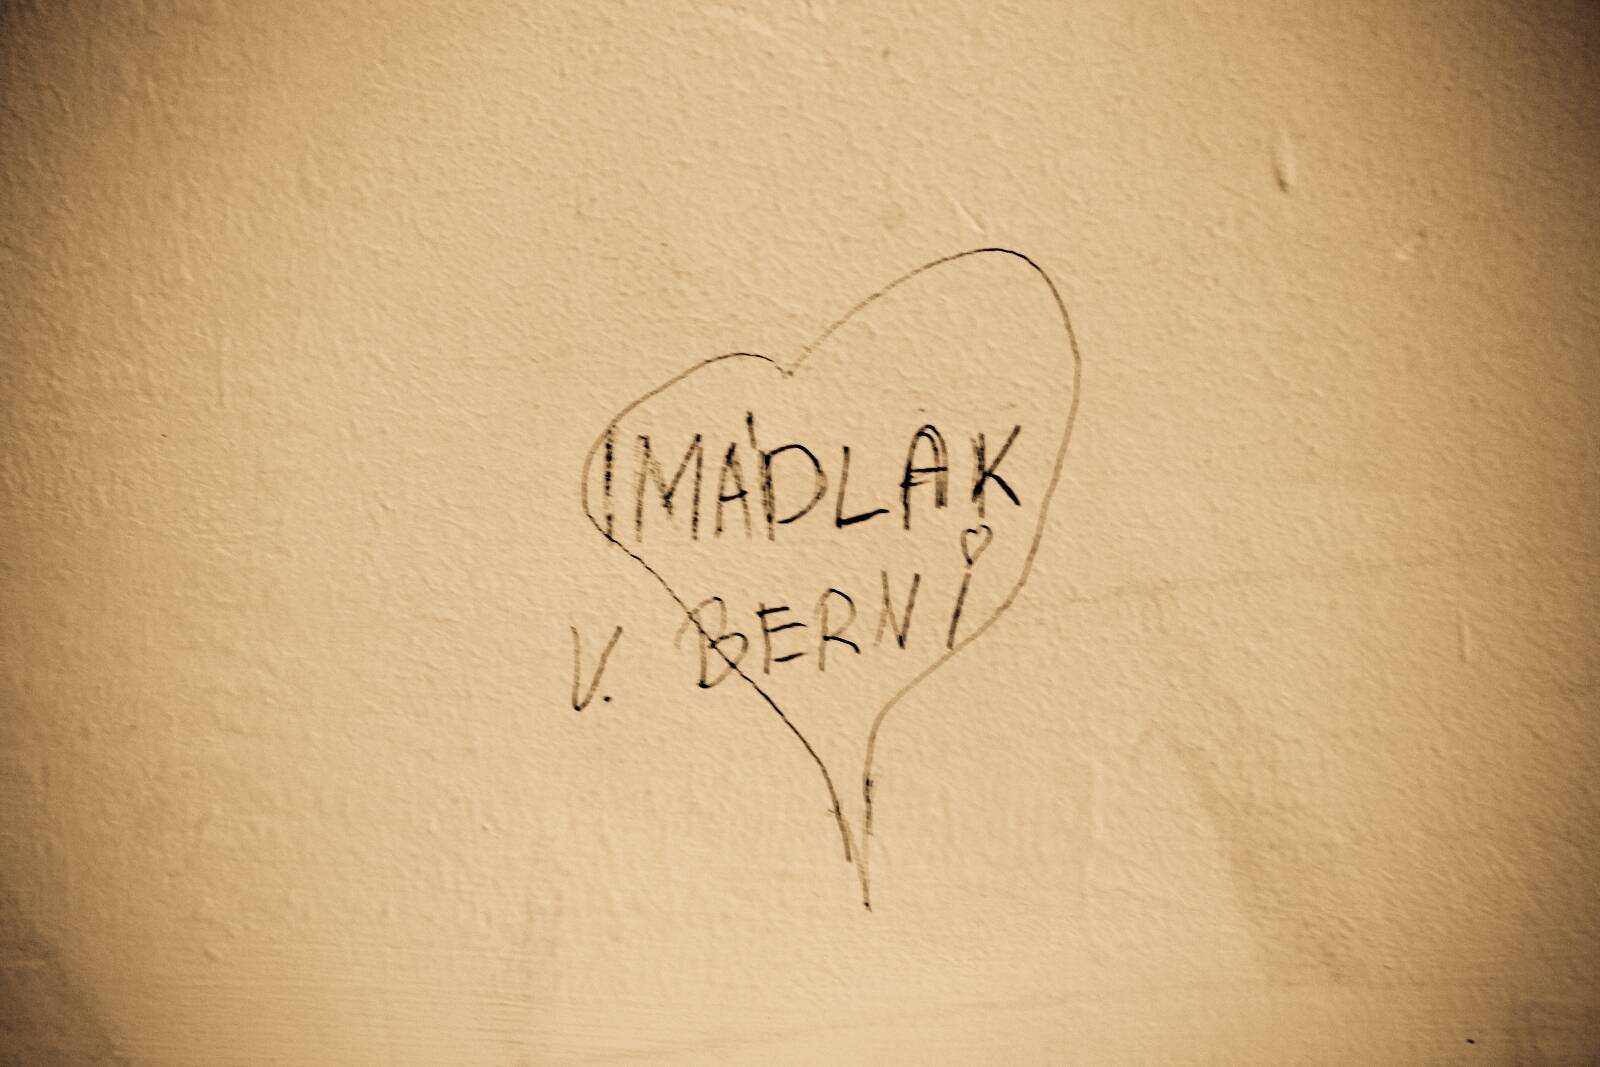 IMÁDLAK
V. BERNi